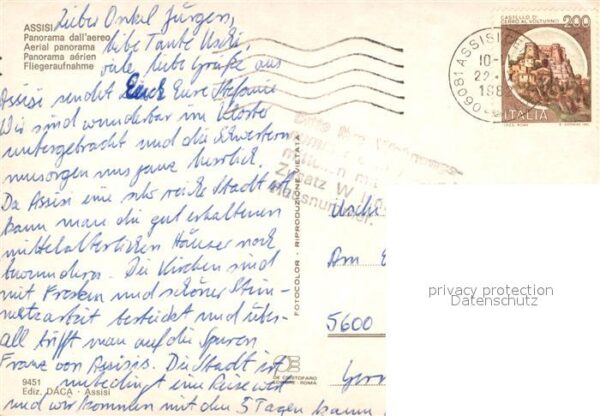 ASSISI
Panorama dall'aereo
Aerial panorama
Panorama aérien
Fliegeraufnahme
Lieber Onkel Jürgen,
liebe Tante Uschi,
viele liebe Grüße aus
Assisi sendet Euch Eure Stefanie
Wir sind wunderbar im Kloster
untergebracht und die Schwestern
umsorgen uns ganz herrlich.
Da Assisi eine sehr reiche Stadt ist
kann man die gut erhaltenen
mittelalterlichen Häuser noch
bewundern. Die Kirchen sind
mit Fresken und schöner Stein-
metzarbeit bestückt und über-
all trifft man auf die Spuren
Franz von Assisis. Die Stadt ist
unbedingt eine Reise wert
und wir kommen mit den 5 Tagen kaum
9451
Ediz. DACA - Assisi
FOTOCOLOR - RIPRODUZIONE VIETATA
CASTELLO DI
CERRO AL VOLTURNO
200
ITALIA
06081 ASSISI
10-
22.
198
Bitte Ihre Wohnungs-
Zusatz W
Hausnummer.
Uschi
Am
5600
privacy protection
Datenschutz